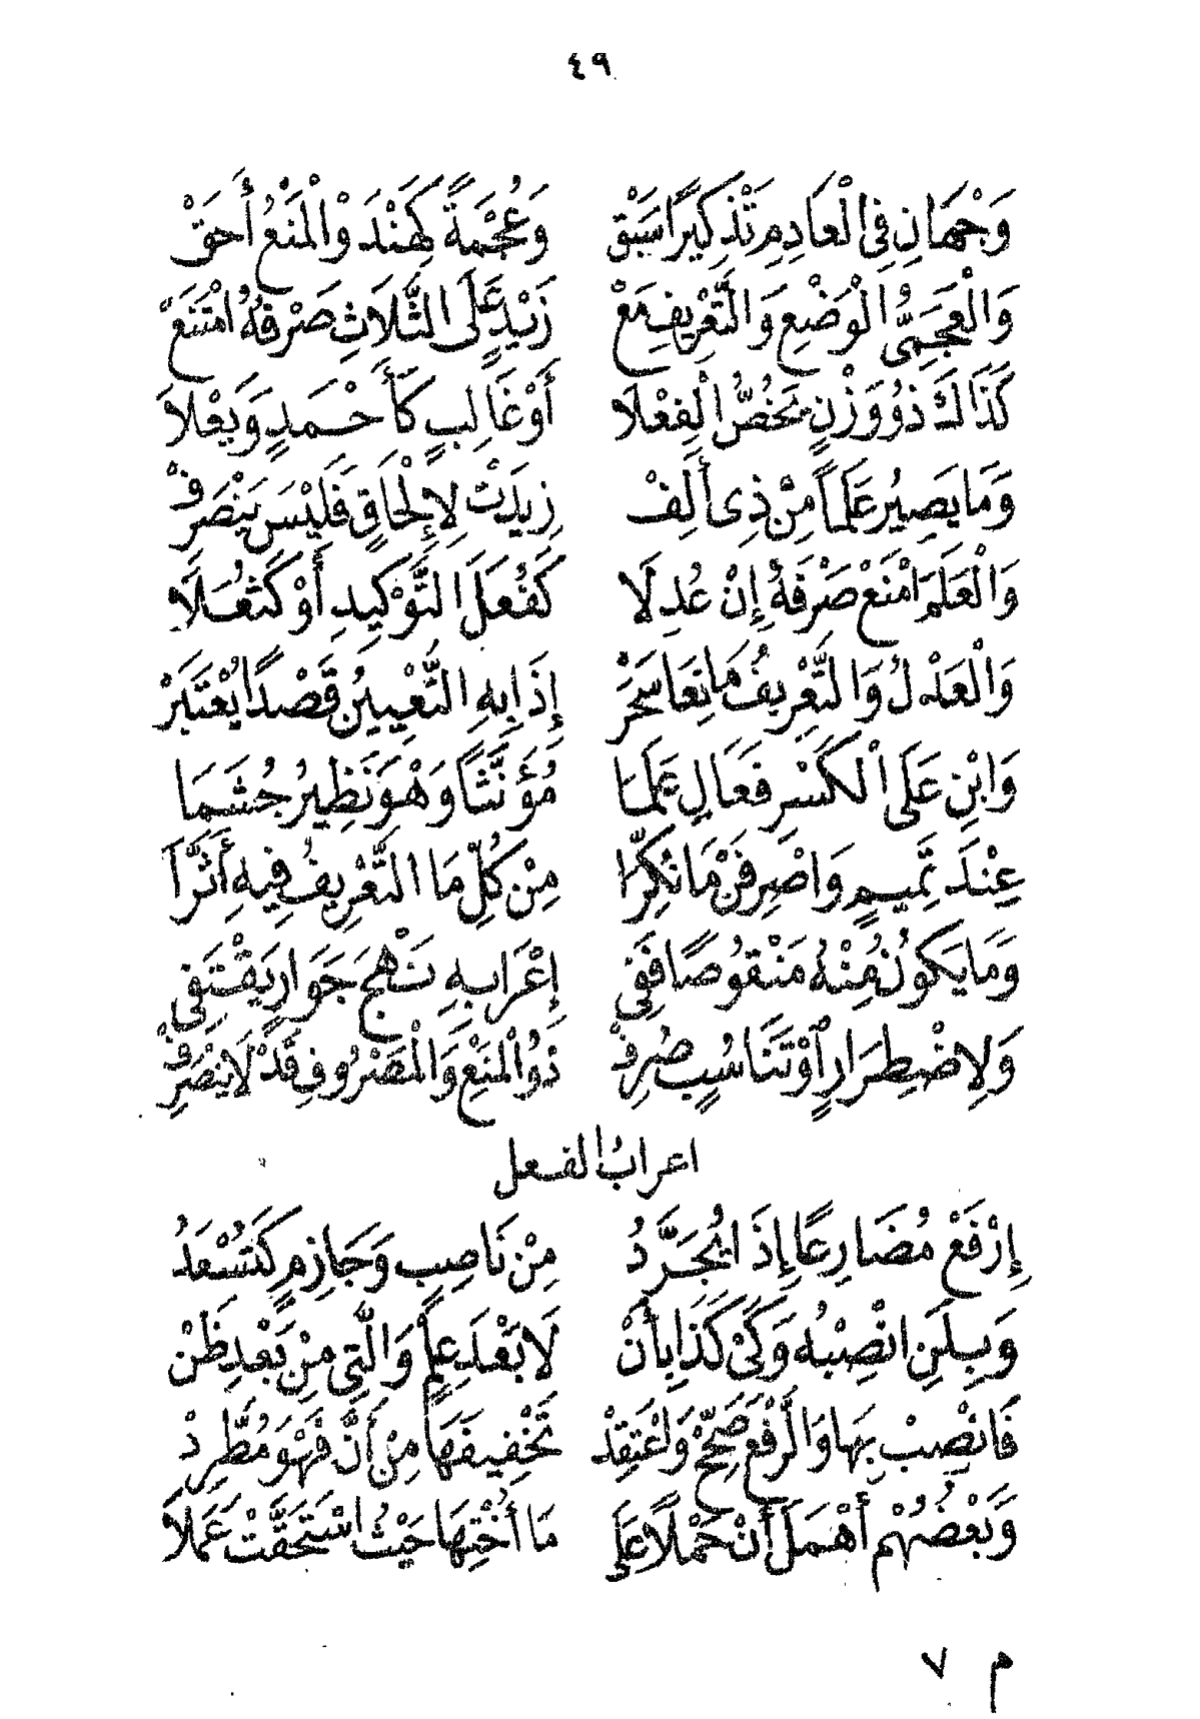 ٤٩
وَجْهَانِ فِى الْعَادِمِ تَذْكِيرًا سَبَقْ وَعُجْمَةً كَهِنْدَ وَالْمَنْعُ أَحَقْ
وَالْعَجَمِىُّ الْوَضْعِ وَالتَّعْرِيفِ مَعْ زَيْدٍ عَلَى الثَّلَاثِ صَرْفُهُ امْتَنَعْ
كَذَاكَ ذُو وَزْنٍ يَخُصُّ الْفِعْلَا أَوْ غَالِبٍ كَأَحْمَدٍ وَيَعْلَا
وَمَا يَصِيرُ عَلَمًا مِنْ ذِى أَلِفْ زِيدَتْ لِإِلْحَاقٍ فَلَيْسَ يَنْصَرِفْ
وَالْعَلَمَ امْنَعْ صَرْفَهُ إِنْ عُدِلَا كَفُعَلَ التَّوْكِيدِ أَوْ كَثُعَلَا
وَالْعَدْلُ وَالتَّعْرِيفُ مَانِعَا سَحَرْ إِذَا بِهِ التَّعْيِينُ قَصْدًا يُعْتَبَرْ
وَابْنِ عَلَى الْكَسْرِ فَعَالِ عَلَمَا مُؤَنَّثًا وَهْوَ نَظِيرُ جُشَمَا
عِنْدَ تَمِيمٍ وَاصْرِفَنْ مَا نُكِّرَا مِنْ كُلِّ مَا التَّعْرِيفُ فِيهِ أَثَّرَا
وَمَا يَكُونُ مِنْهُ مَنْقُوصًا فَفِى إِعْرَابِهِ نَهْجَ جَوَارٍ يَقْتَفِى
وَلِاضْطِرَارٍ أَوْ تَنَاسُبٍ صُرِفْ ذُو الْمَنْعِ وَالْمَصْرُوفُ قَدْ لَا يَنْصَرِفْ
اعراب الفعل
إِرْفَعْ مُضَارِعًا إِذَا يُجَرَّدُ مِنْ نَاصِبٍ وَجَازِمٍ كَتَسْعَدُ
وَبِلَنِ انْصِبْهُ وَكَىْ كَذَا بِأَنْ لَا بَعْدَ عِلْمٍ وَالَّتِى مِنْ بَعْدِ ظَنْ
فَانْصِبْ بِهَا وَالرَّفْعَ صَحِّحْ وَاعْتَقِدْ تَخْفِيفَهَا مِنْ أَنَّ فَهْوَ مُطَّرِدْ
وَبَعْضُهُمْ أَهْمَلَ أَنْ حَمْلًا عَلَى مَا أُخْتِهَا حَيْثُ اسْتَحَقَّتْ عَمَلَا
م ٧